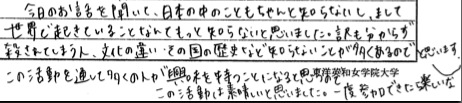 今日のお話を聞いて、日本の中のこともちゃんと知らないし、まして
世界で起きていることなんてもっと知らないと思いました。訳も分からず
殺されてしまう人、文化の違い・その国の歴史など知らないことが多くあるのでと思います。
この活動を通して多くの人が興味を持つことになると思う 東洋英和女学院大学
この活動は素晴しいと思いました。一度参加できたら楽しいな